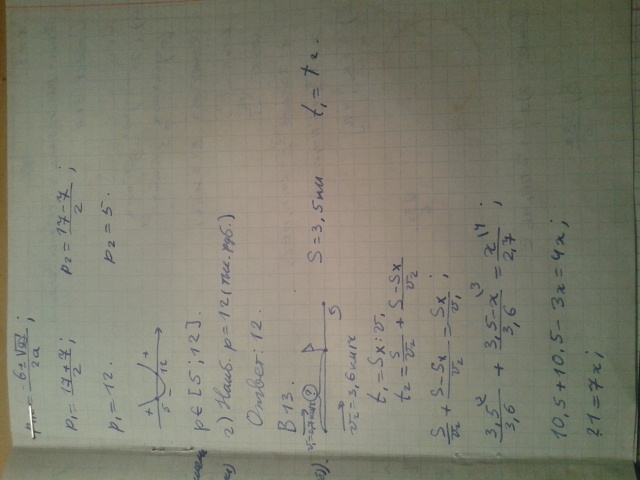 p₁,₂ = (-b ± √D)/2a ;
p₁ = (17+7)/2 ; p₂ = (17-7)/2 ;
p₁ = 12. p₂ = 5.
+ - +
5 12
p ∈ [5 ; 12].
2) Наиб. p = 12 (тыс. руб.)
Ответ: 12.
B 13.
S = 3,5 км t₁ = t₂.
v₂ = 3,6 км/ч
t₁ = Sx : v₁
t₂ = S/v₂ + (S-Sx)/v₂
S/v₂ + (S-Sx)/v₂ = Sx/v₁ ;
3,5/3,6 + (3,5-x)/3,6 \3 = x/2,7 \4 ;
10,5 + 10,5 - 3x = 4x ;
21 = 7x ;